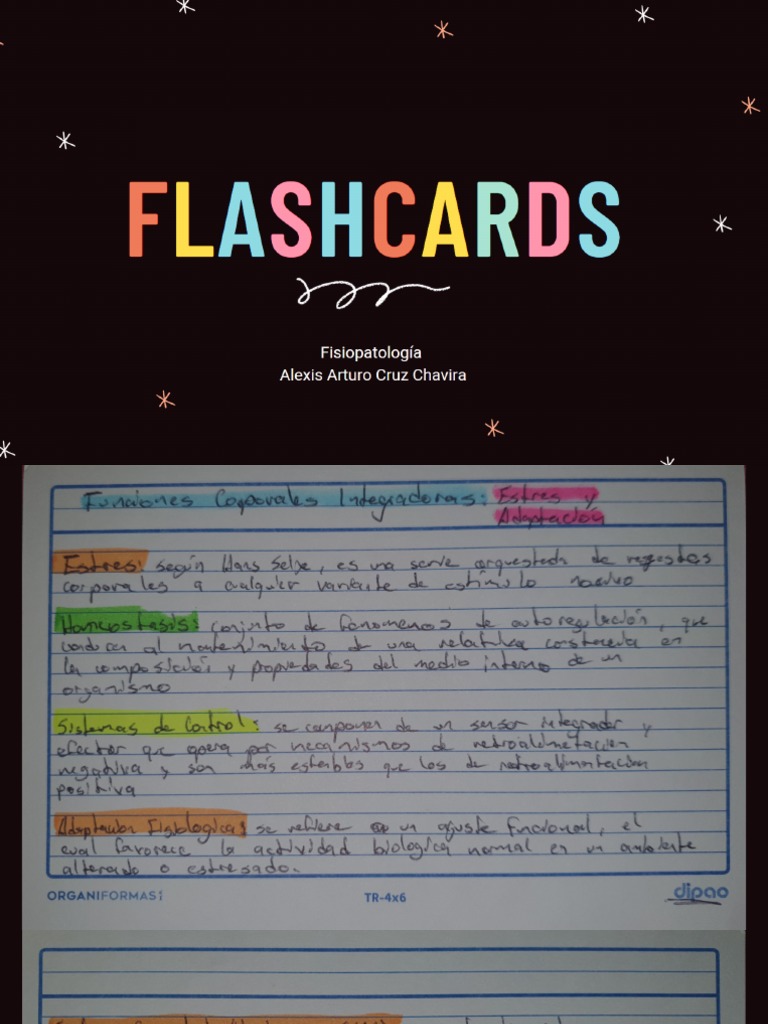 FLASHCARDS
Fisiopatología
Alexis Arturo Cruz Chavira
Funciones Corporales Integradoras: Estres y
Adaptación
Estres: según Hans Selye, es una serie orquestada de respuestas
corporales a cualquier variante de estímulo nocivo
Homeostasis: conjunto de fenomenos de autoregulación, que
conducen al mantenimiento de una relativa constancia en
la composición y propiedades del medio interno de un
organismo
Sistemas de Control: se componen de un sensor integrador y
efector que opera por mecanismos de retroalimentación
negativa y son más estables que los de retroalimentación
positiva
Adaptación Fisiologica: se refiere a un ajuste funcional, el
cual favorece la actividad biologica normal en un ambiente
alterado o estresado.
ORGANIFORMAS
TR-4x6
dipao